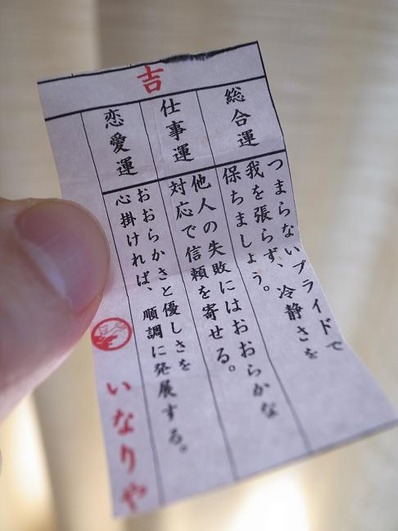 吉
総合運
つまらないプライドで
我を張らず、冷静さを
保ちましょう。
仕事運
他人の失敗にはおおらかな
対応で信頼を寄せる。
恋愛運
おおらかさと優しさを
心掛ければ、順調に発展する。
いなりや